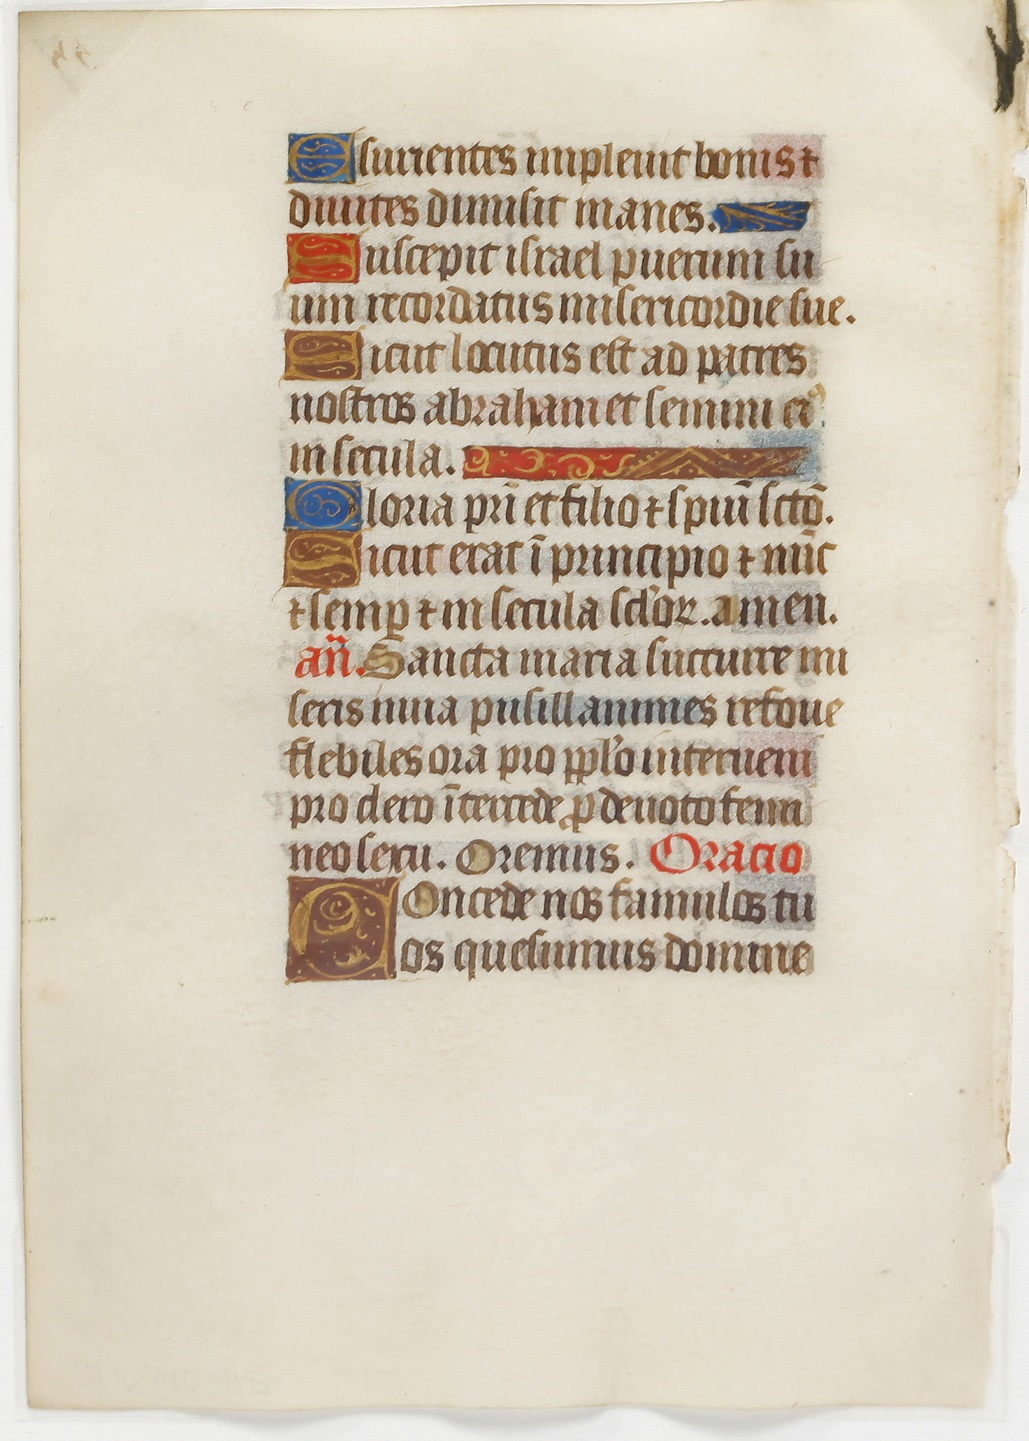 Esurientes impleuit bonis ⁊
diuites dimisit inanes.
Suscepit israel puerum su
um recordatus misericordie sue.
Sicut locutus est ad patres
nostros abraham et semini eiꝰ
in secula.
Gloria pr̄i et filio ⁊ spiū sctō.
Sicut erat ī principio ⁊ nūc
⁊ semp̄ ⁊ in secula sclọꝝ. amen.
an̄. Sancta maria succurre mi
seris iuua pusillanimes refoue
flebiles ora pro ppl'o interueni
pro clero ītercede p̱ deuoto femi
neo sexu. Oremus. Oracio
COncede nos famulos tu
os quesumus domine